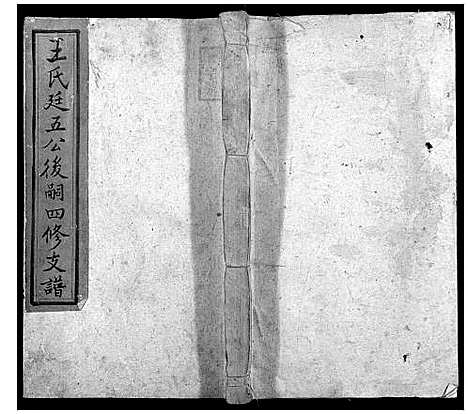 王氏廷五公後嗣四修支譜